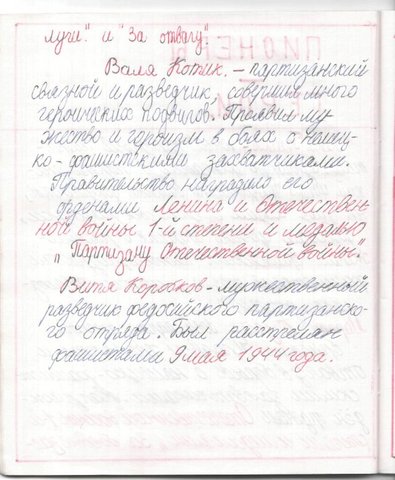 лугу." и "За отвагу".
Валя Котик. - партизанский
связной и разведчик, совершил много
героических подвигов. Проявил му
жество и героизм в боях с немец-
ко-фашистскими захватчиками.
Правительство наградило его
орденами Ленина и Отечествен
ной войны 1-й степени и медалью
„Партизану Отечественной войны".
Витя Коробков - мужественный
разведчик феодосийского партизанско-
го отряда. Был расстрелян
фашистами 9 мая 1944 года.